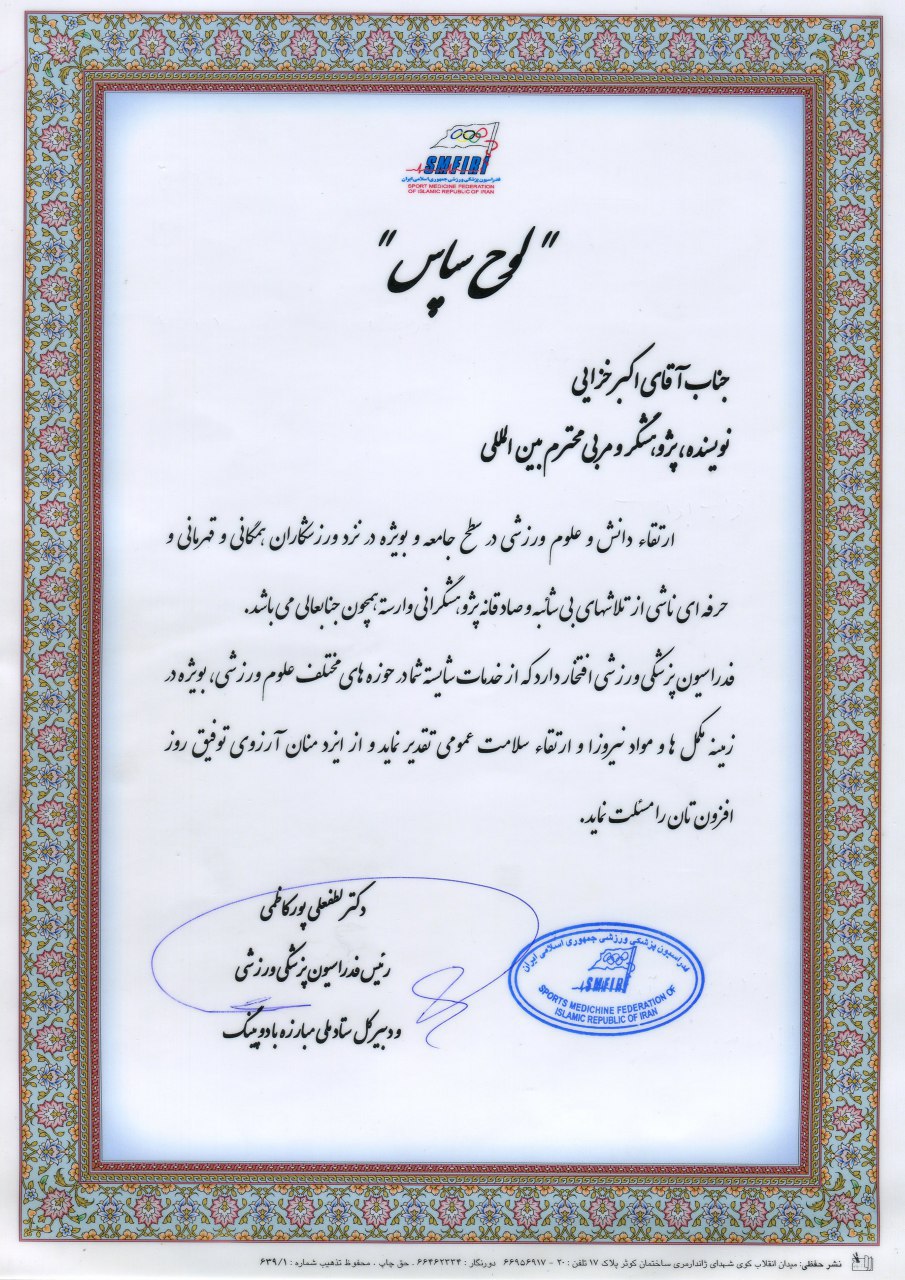 SMFIRI
فدراسیون پزشکی ورزشی جمهوری اسلامی ایران
SPORT MEDICINE FEDERATION
OF ISLAMIC REPUBLIC OF IRAN
"لوح سپاس"
جناب آقای اکبر خزایی
نویسنده، پژوهشگر و مربی محترم بین المللی
ارتقاء دانش و علوم ورزشی در سطح جامعه و بویژه در نزد ورزشکاران همگانی و قهرمانی و
حرفه ای ناشی از تلاشهای بی شائبه و صادقانه پژوهشگرانی وارسته همچون جنابعالی می باشد.
فدراسیون پزشکی ورزشی افتخار دارد که از خدمات شایسته شما در حوزه های مختلف علوم ورزشی، بویژه در
زمینه مکمل ها و مواد نیروزا و ارتقاء سلامت عمومی تقدیر نماید و از ایزد منان آرزوی توفیق روز
افزون تان را مسئلت نماید.
دکتر لطفعلی پورکاظمی
رئیس فدراسیون پزشکی ورزشی
و دبیر کل ستاد ملی مبارزه با دوپینگ
فدراسیون پزشکی ورزشی جمهوری اسلامی ایران
SMFIRI
SPORTS MEDICHINE FEDERATION OF
ISLAMIC REPUBLIC OF IRAN
نشر حفظی: میدان انقلاب کوی شهدای ژاندارمری ساختمان کوثر پلاک ۱۷ تلفن : ۲۰ - ۶۶۹۵۶۹۱۷ دورنگار : ۶۶۴۶۲۲۳۴ . حق چاپ . محفوظ تذهیب شماره : ۶۳۹/۱